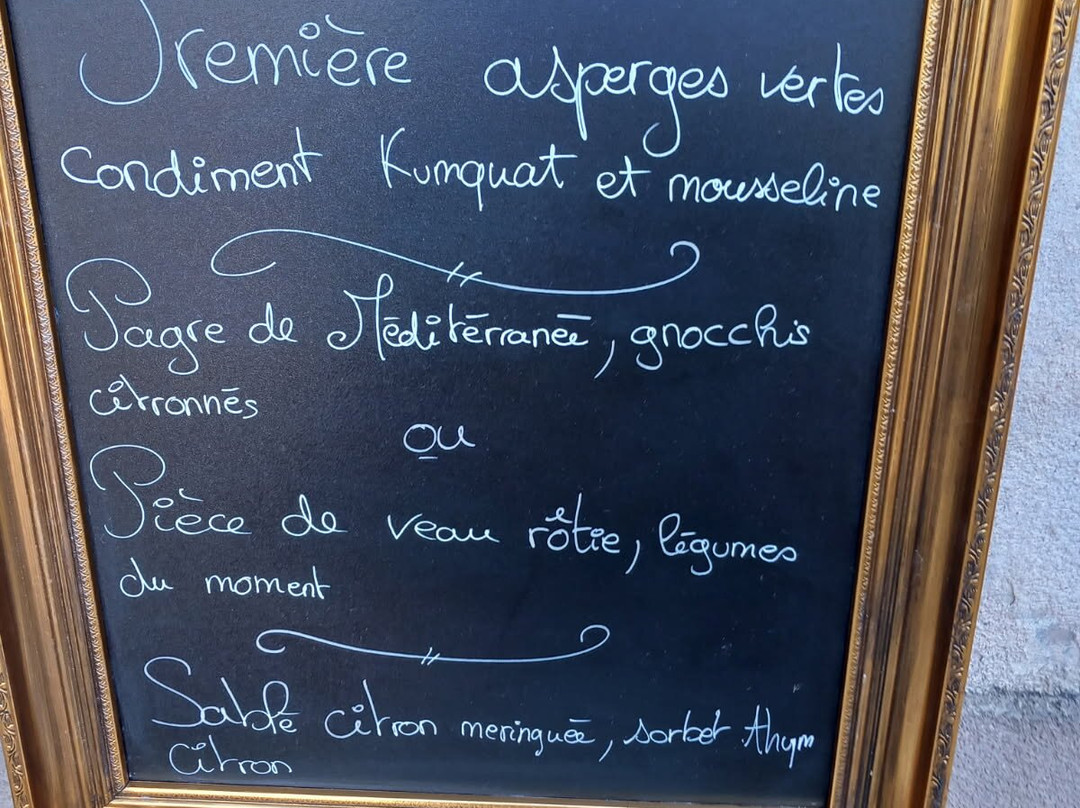 Première asperges vertes
Condiment Kumquat et mousseline
Pagre de Méditérranée, gnocchis
citronnés
ou
Pièce de veau rôtie, légumes
du moment
Sablé citron meringuée, sorbet thym
citron